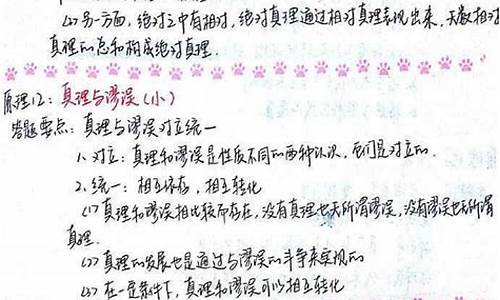 (2)另一方面,绝对之中有相对,绝对真理通过相对真理表现出来,无数相对
真理的总和构成绝对真理.
原理12:真理与谬误(小)
答题要点:真理与谬误对立统一
1、对立:真理和谬误是性质不同的两种认识,它们是对立的.
2、统一:相互依存,相互转化
(1)真理和谬误相比较而存在,没有真理也无所谓谬误,没有谬误也无所谓
真理.
(2)真理的发展也是通过与谬误的斗争来实现的
(3)在一定条件下,真理和谬误可以相互转化